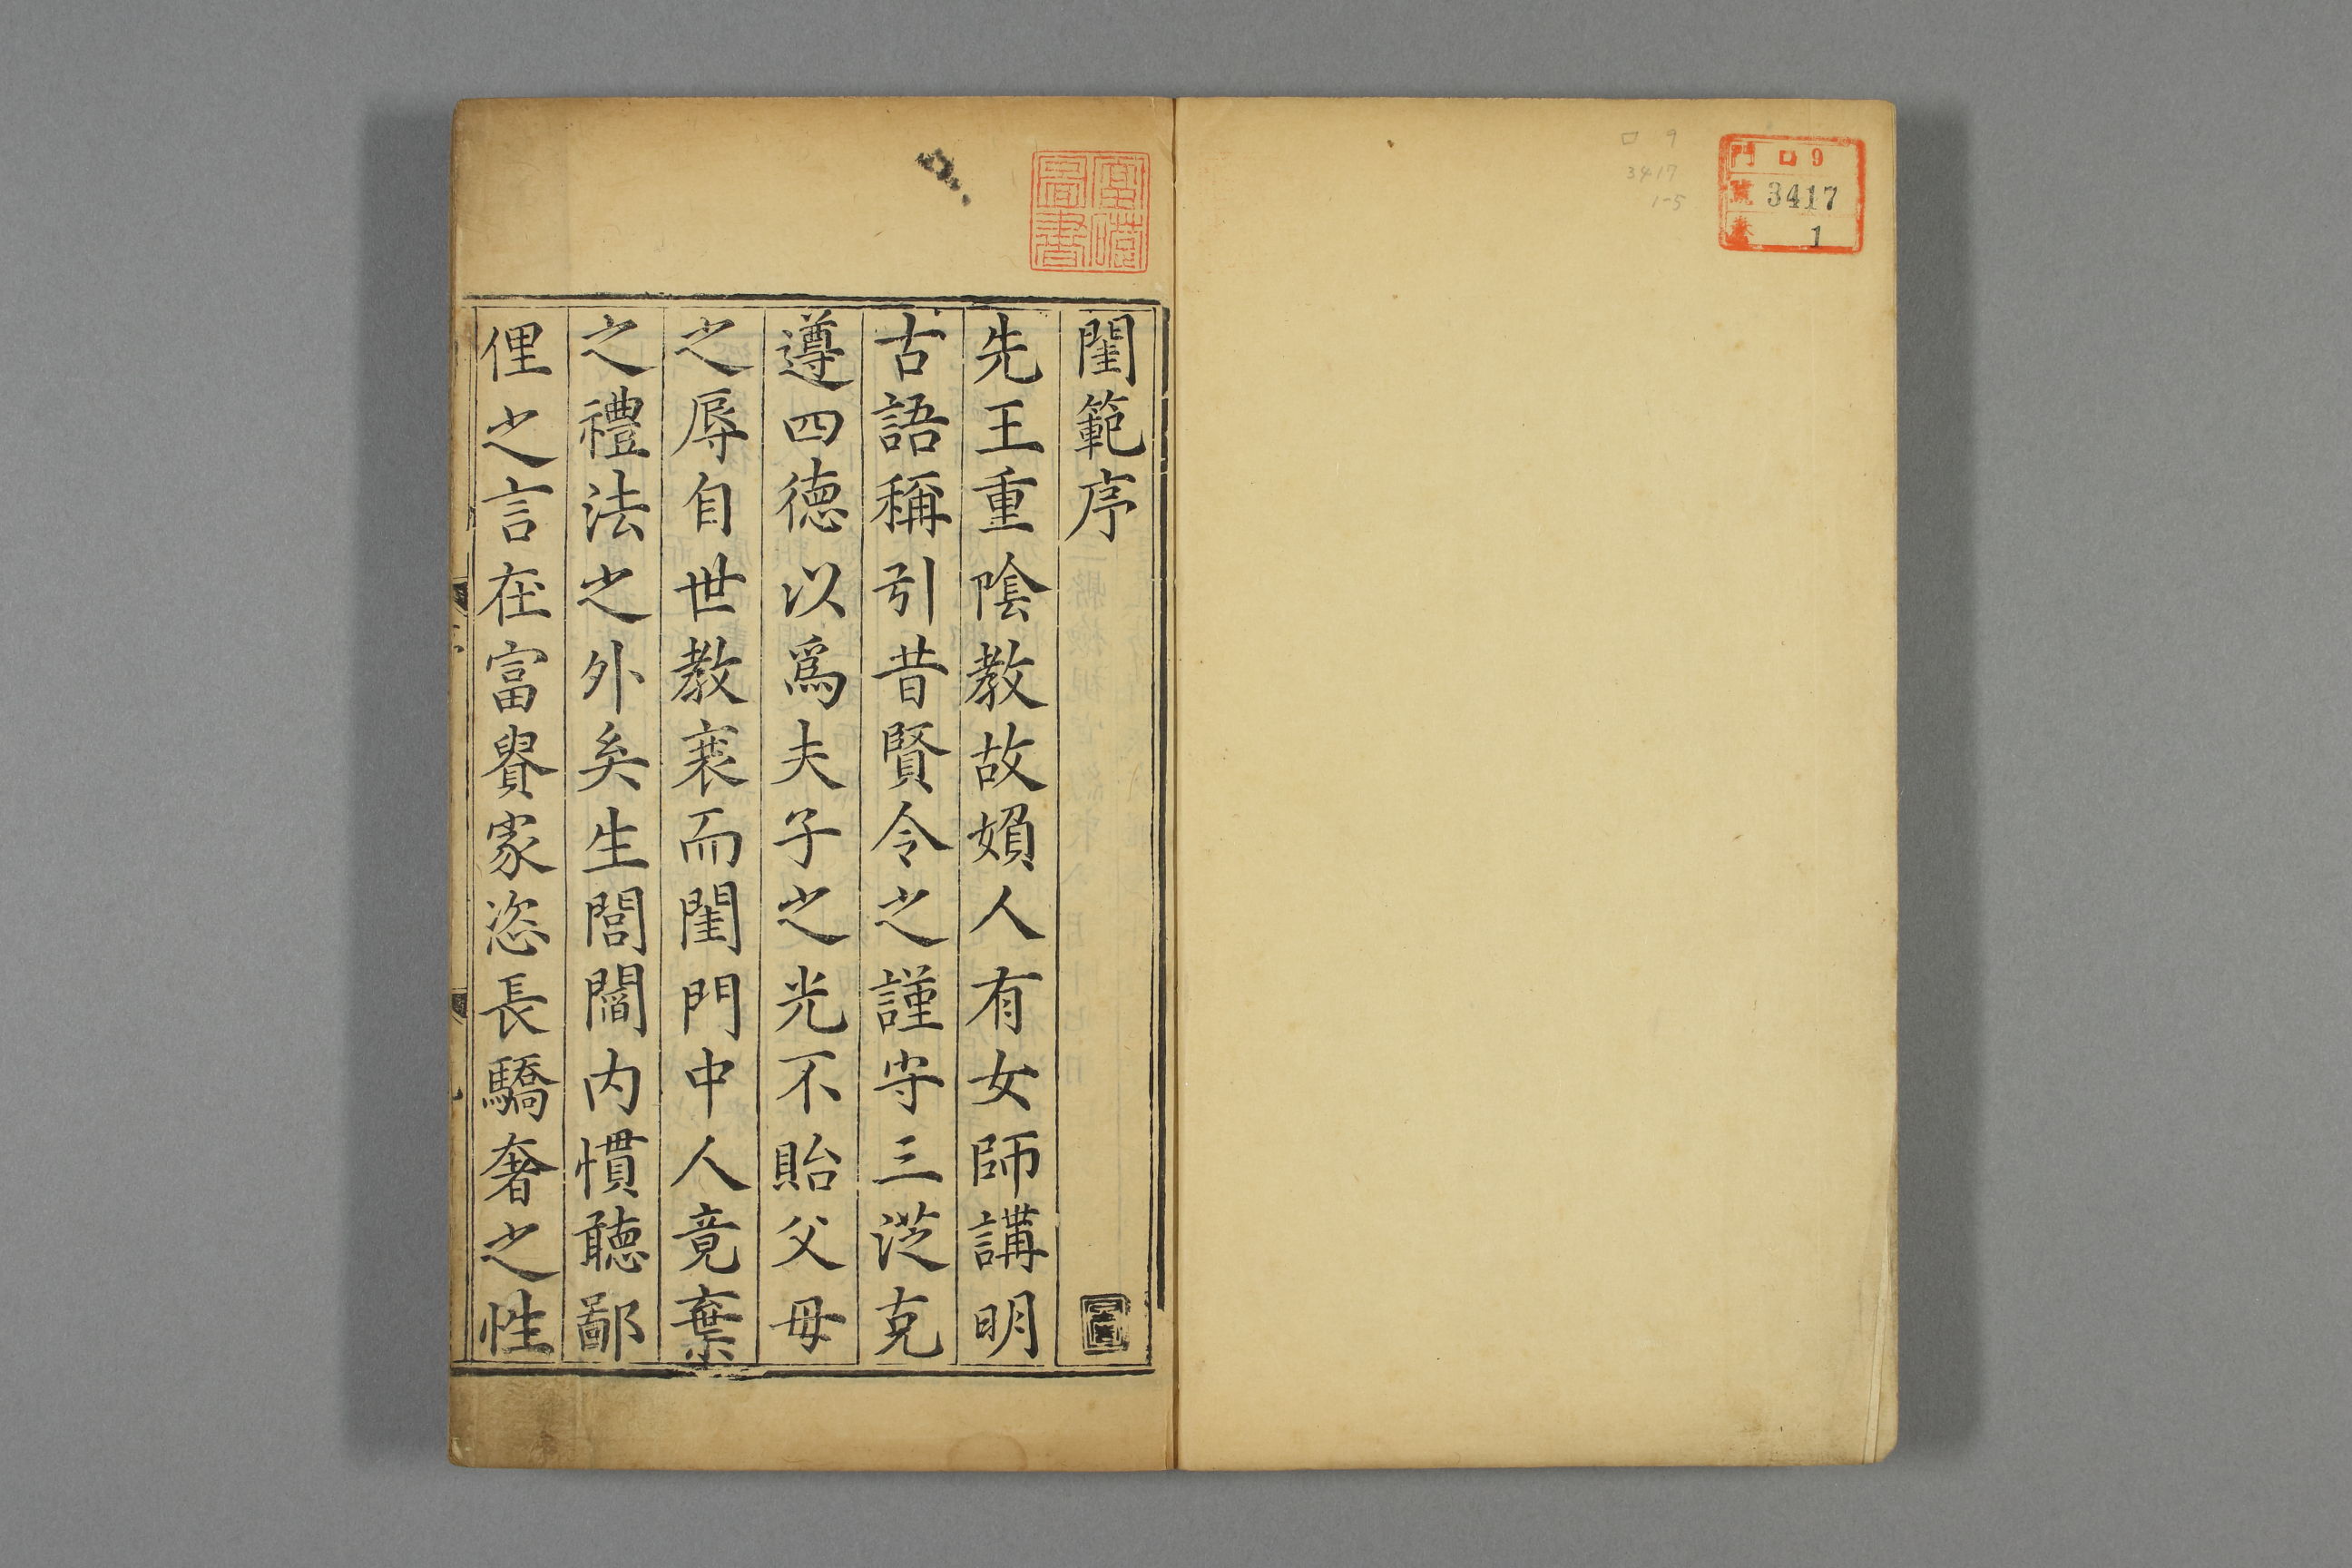 門 ロ 9
號 3417
卷 1
ロ 9
3417
1-5
閨範序
先王重陰教故婦人有女師講明
古語稱引昔賢令之謹守三從克
遵四德以爲夫子之光不貽父母
之辱自世教衰而閨門中人竟棄
之禮法之外矣生閭閻内慣聽鄙
俚之言在富貴家恣長驕奢之性